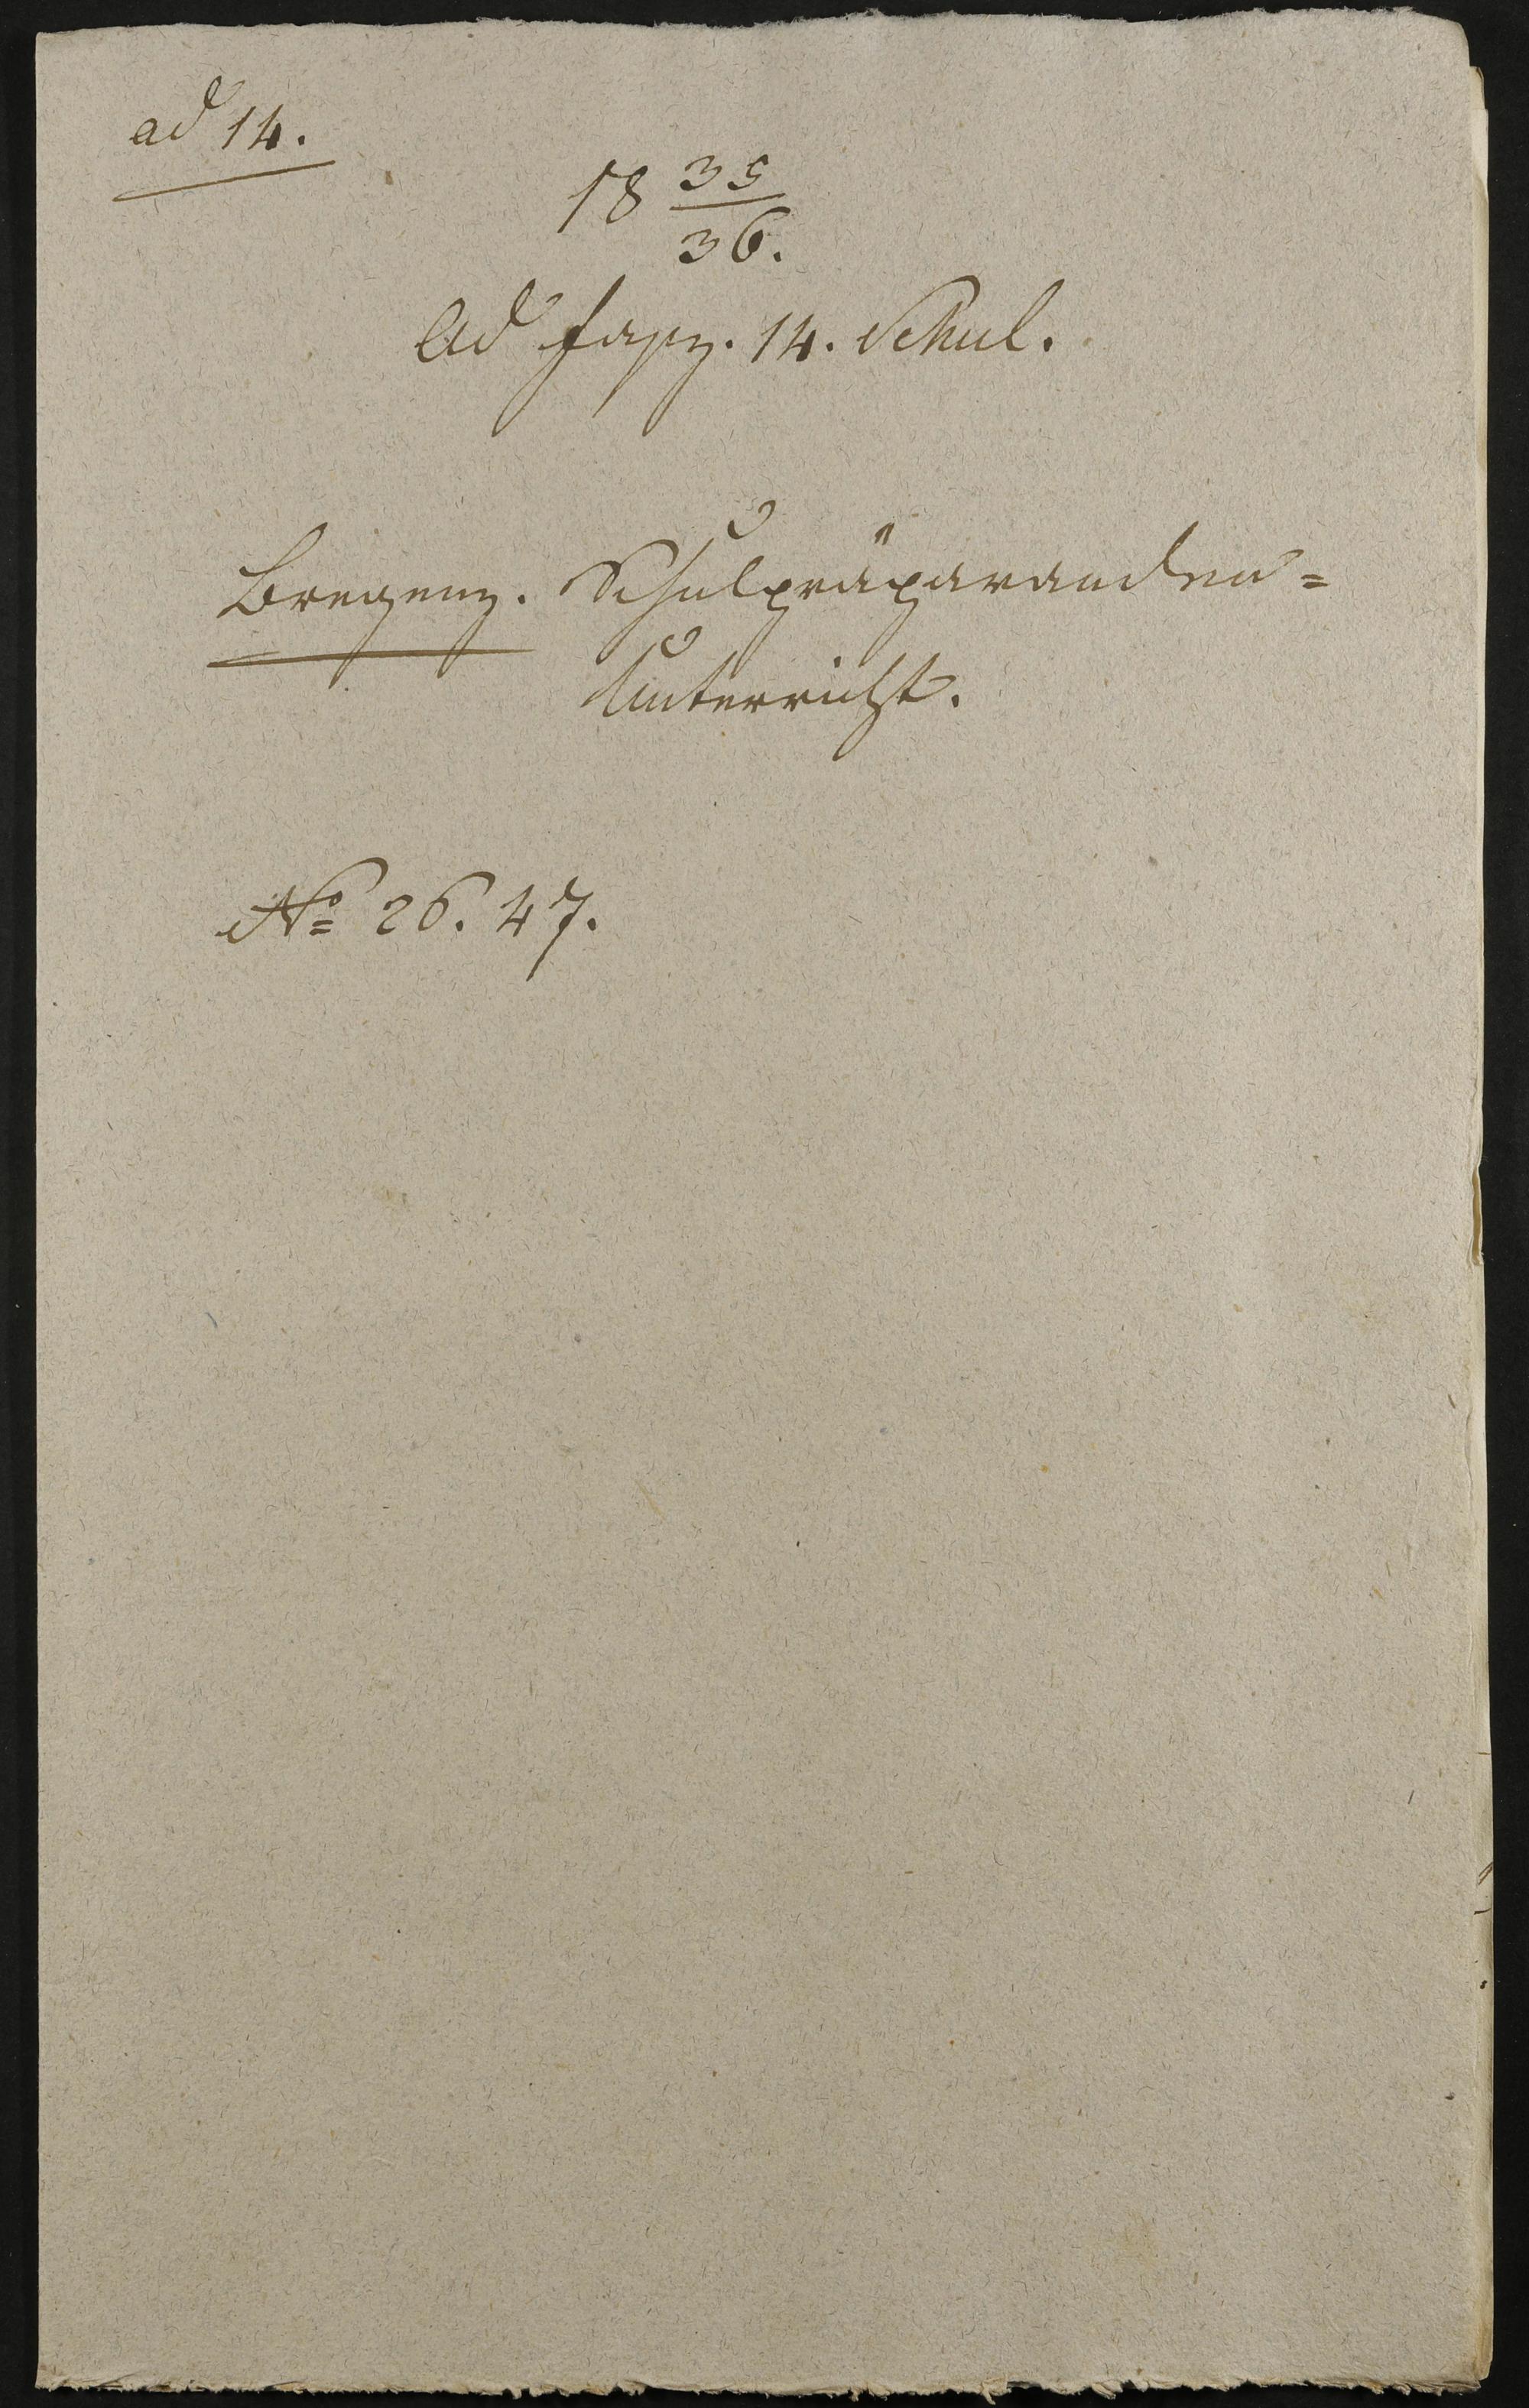 ad 14.
18 35/36.
Ad fasz. 14. Schul.
Bregenz. Schulpräparanden=
Unterricht.
No 26. 47.